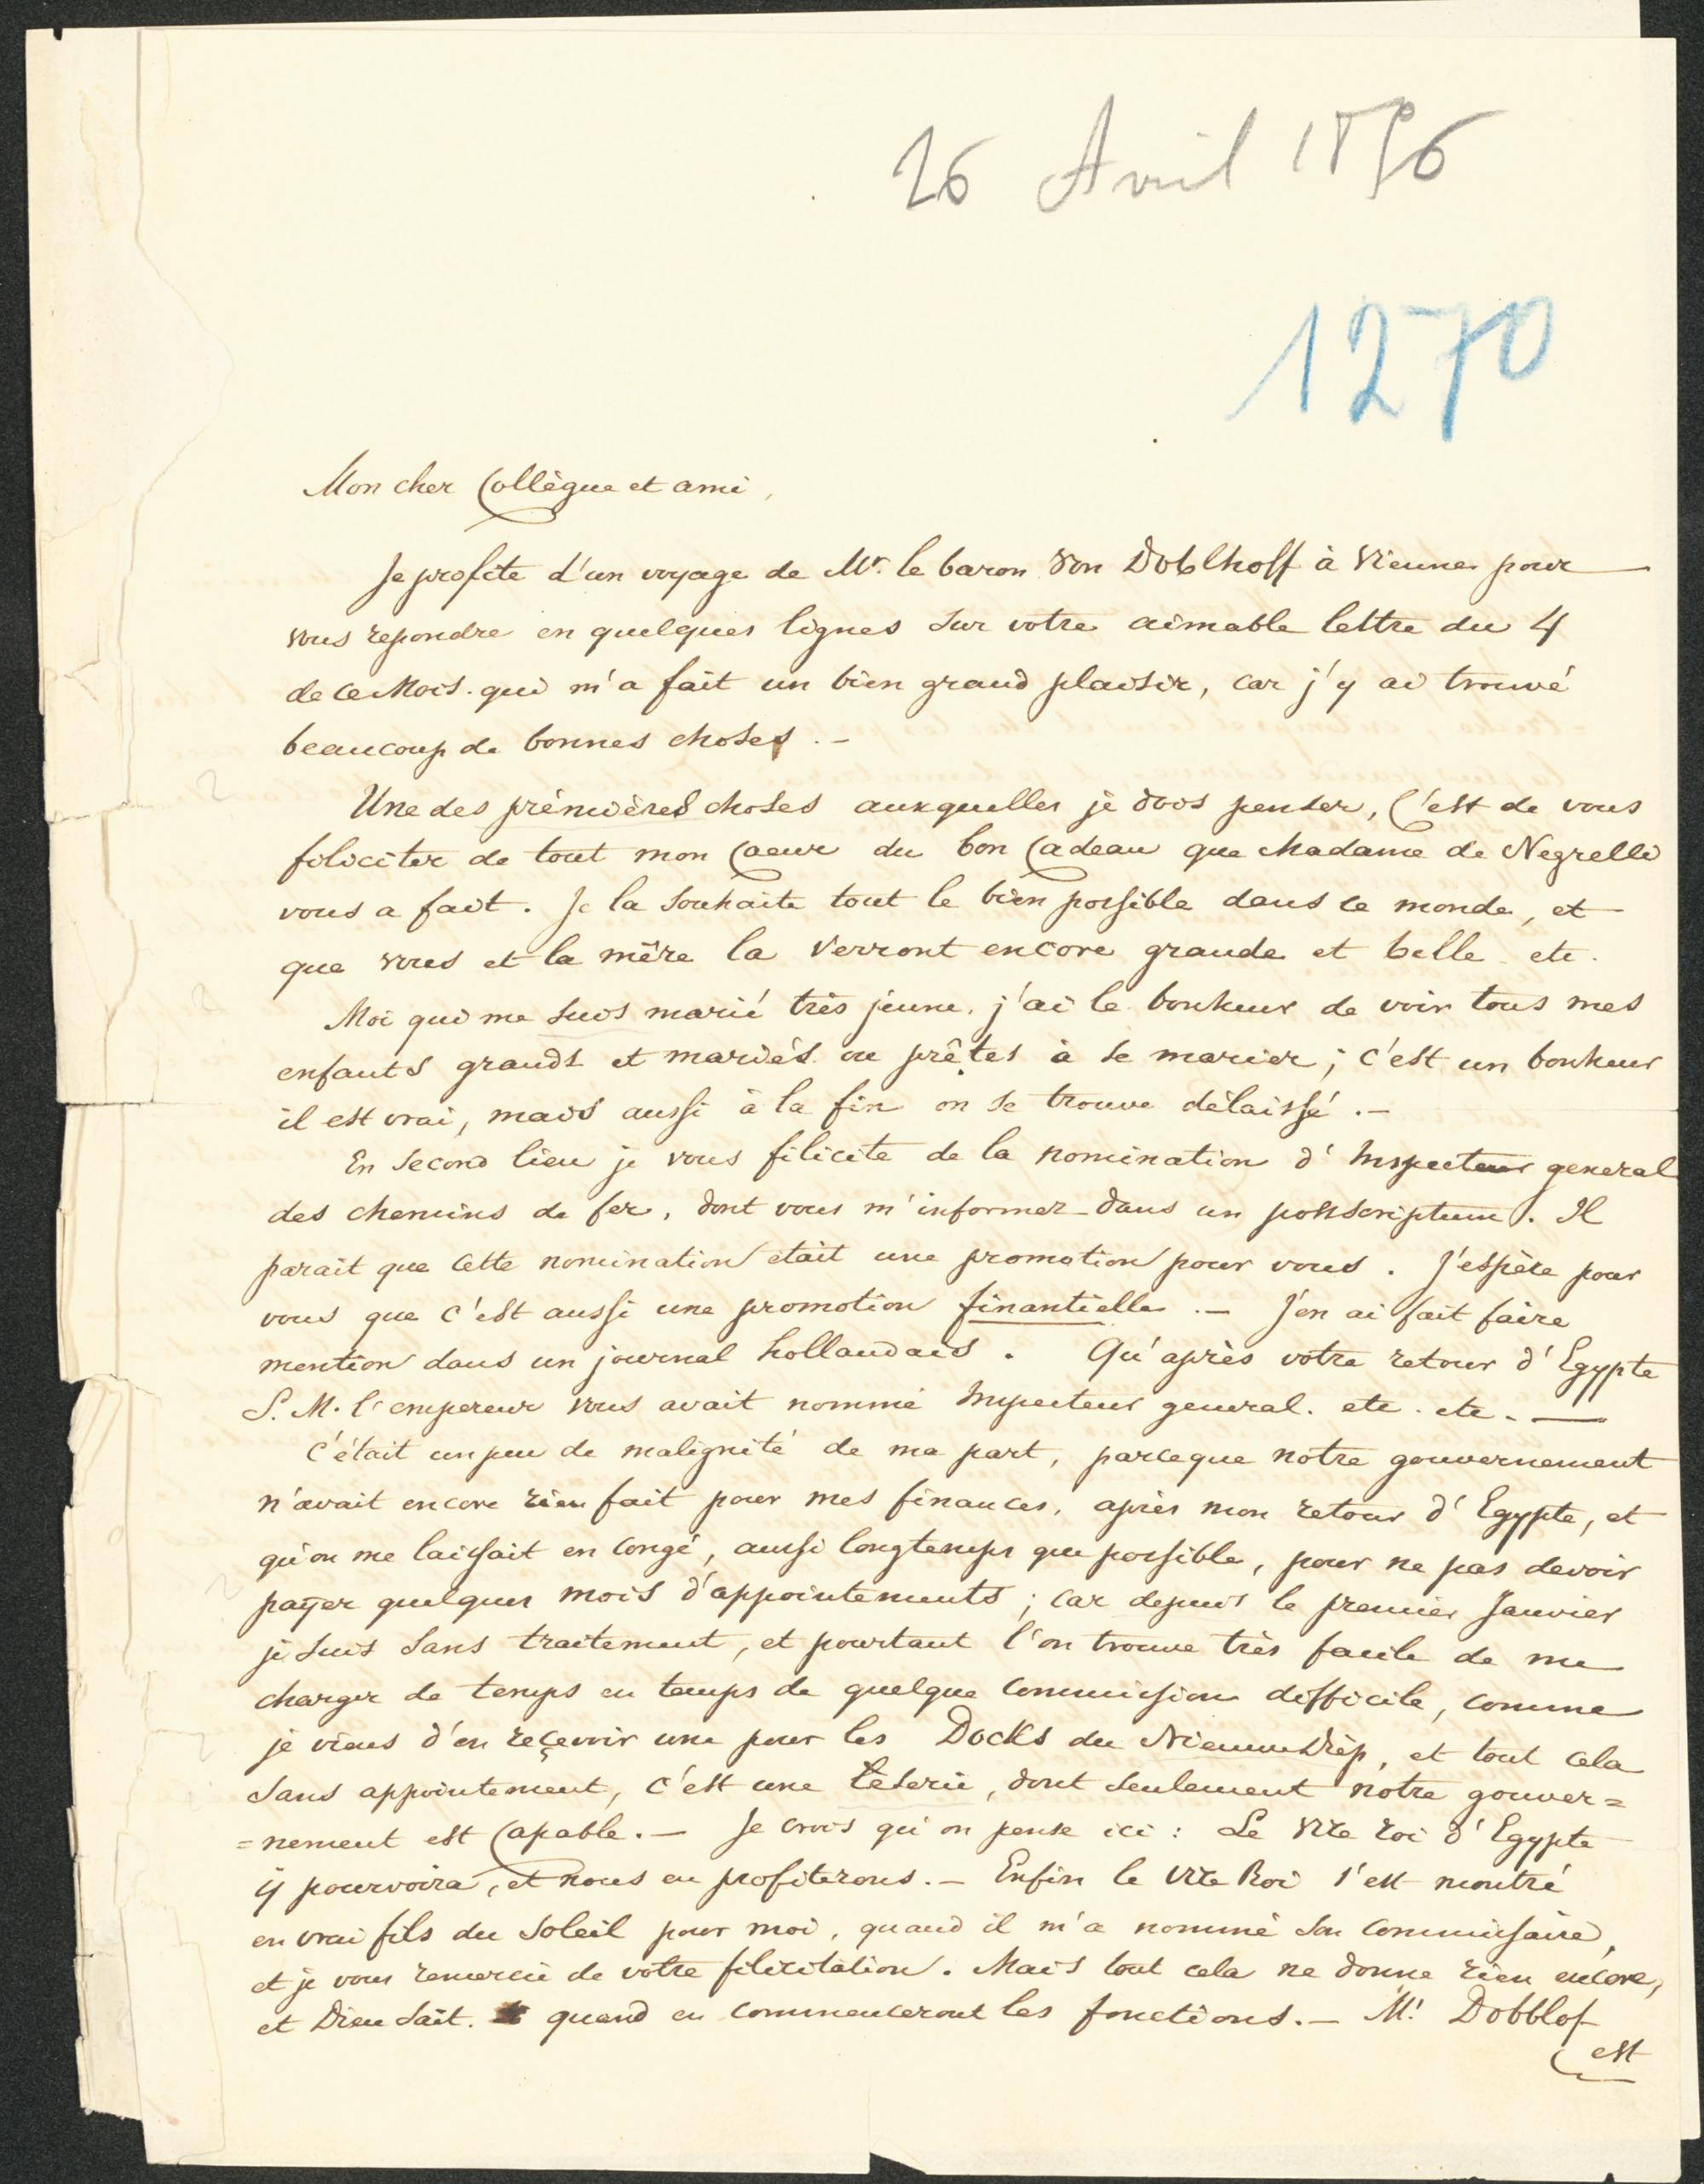 26 Avril 1856
1270
Mon cher Collègue et ami,
Je profite d'un voyage de Mr. le baron von Doblhoff à Vienne pour
vous repondre en quelques lignes sur votre aimable lettre du 4
de ce Mois. qui m'a fait un bien grand plaisir, car j'y ai trouvé
beaucoup de bonnes choses. —
Une des prémières choses auxquelles je dois penser, C'est de vous
féliciter de tout mon Coeur du bon Cadeau que Madame de Negrelli
vous a fait. Je la souhaite tout le bien possible dans ce monde, et
que vous et la mère la verront encore grande et belle etc.
Moi qui me suis marié très jeune, j'ai le bonheur de voir tous mes
enfants grands et mariés ou prêtes à se marier; c'est un bonheur
il est vrai, mais aussi à la fin on se trouve délaissé. —
En second lieu je vous félicite de la nomination d'Inspecteur general
des chemins de fer, dont vous m'informez dans un postscriptum. Il
parait que cette nomination etait une promotion pour vous. J'espère pour
vous que c'est aussi une promotion finantielle. — J'en ai fait faire
mention dans un journal hollandais. Qu'après votre retour d'Egypte
S. M. l'empereur vous avait nommé Inspecteur general. etc. etc. —
C'était un peu de malignité de ma part, parceque notre gouvernement
n'avait encore rien fait pour mes finances, après mon retour d'Egypte, et
qu'on me laissait en congé, aussi longtemps que possible, pour ne pas devoir
payer quelques mois d'appointements; car depuis le premier Janvier
je suis sans traitement, et pourtant l'on trouve très facile de me
charger de temps en temps de quelque commission difficile, comme
je viens d'en reçevoir une pour les Docks du Nieuwediep, et tout cela
sans appointement, c'est une , dont seulement notre gouver=
=nement est Capable. — Je crois qu'on pense ici : Le Vice roi d'Egypte
y pourvoira, et nous en profiterons. — Enfin le vice Roi s'est montré
en vrai fils du Soleil pour moi, quand il m'a nommé son commissaire,
et je vous remercie de votre félicitation. Mais tout cela ne donne rien encore,
et Dieu sait. quand en commenceront les fonctions. — Mr. Dobblof
est